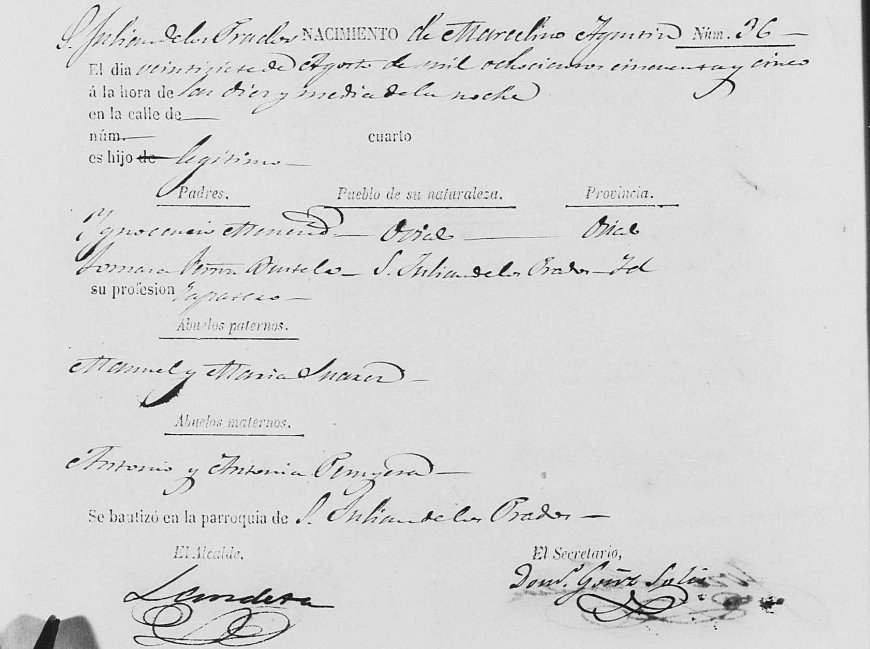 S. Julian de los Prados NACIMIENTO de Marcelino Agustin Núm. 36
El dia veintisiete de Agosto de mil ochocientos cincuenta y cinco
á la hora de las diez y media de la noche
en la calle de
núm. cuarto
es hijo de legitimo
Padres. Pueblo de su naturaleza. Provincia.
Ygnocencio Menend Ovieo Ovieo
Tomasa S. Julian de los Prados Id
su profesion
Abuelos paternos.
Manuel y Maria Suarez
Abuelos maternos.
Antonio y Antonia
Se bautizó en la parroquia de S. Julian de los Prados
El Alcalde, El Secretario,